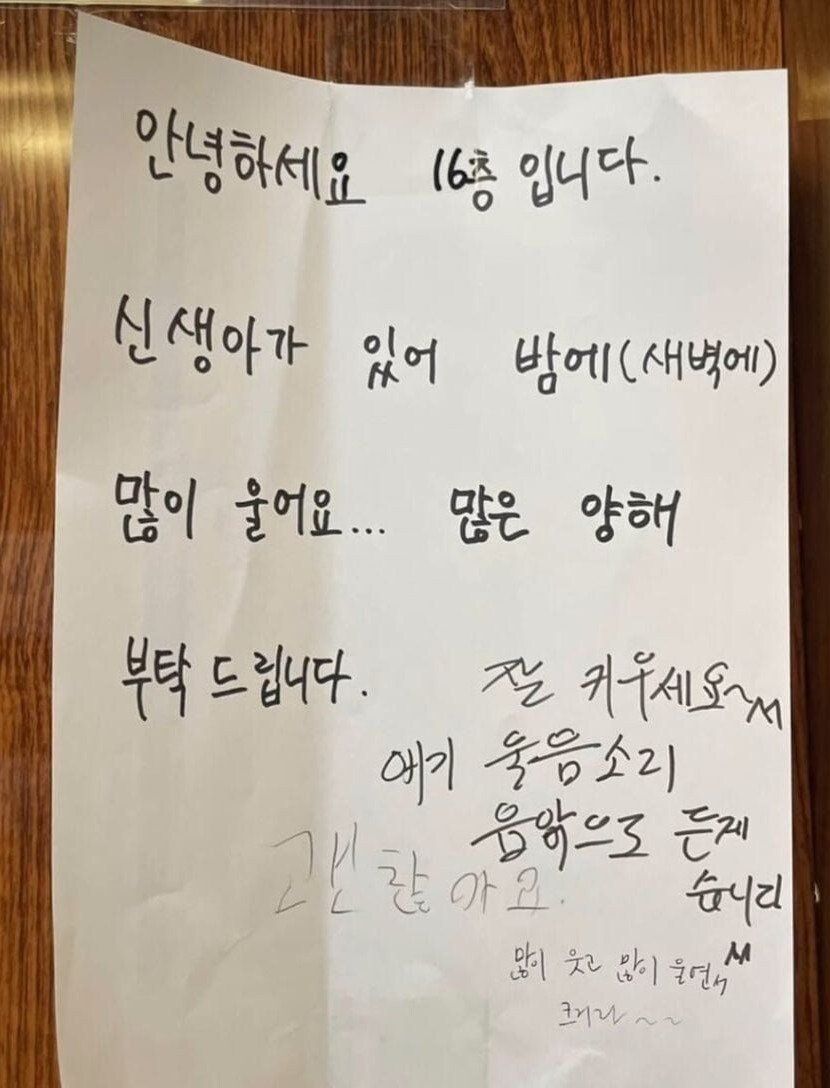 안녕하세요 16층 입니다.
신생아가 있어 밤에(새벽에)
많이 울어요... 많은 양해
부탁 드립니다.
잘 키우세요~^^
애기 울음소리
음악으로 듣겠
습니다
괜찮아요.
많이 웃고 많이 울면서
크거라~~